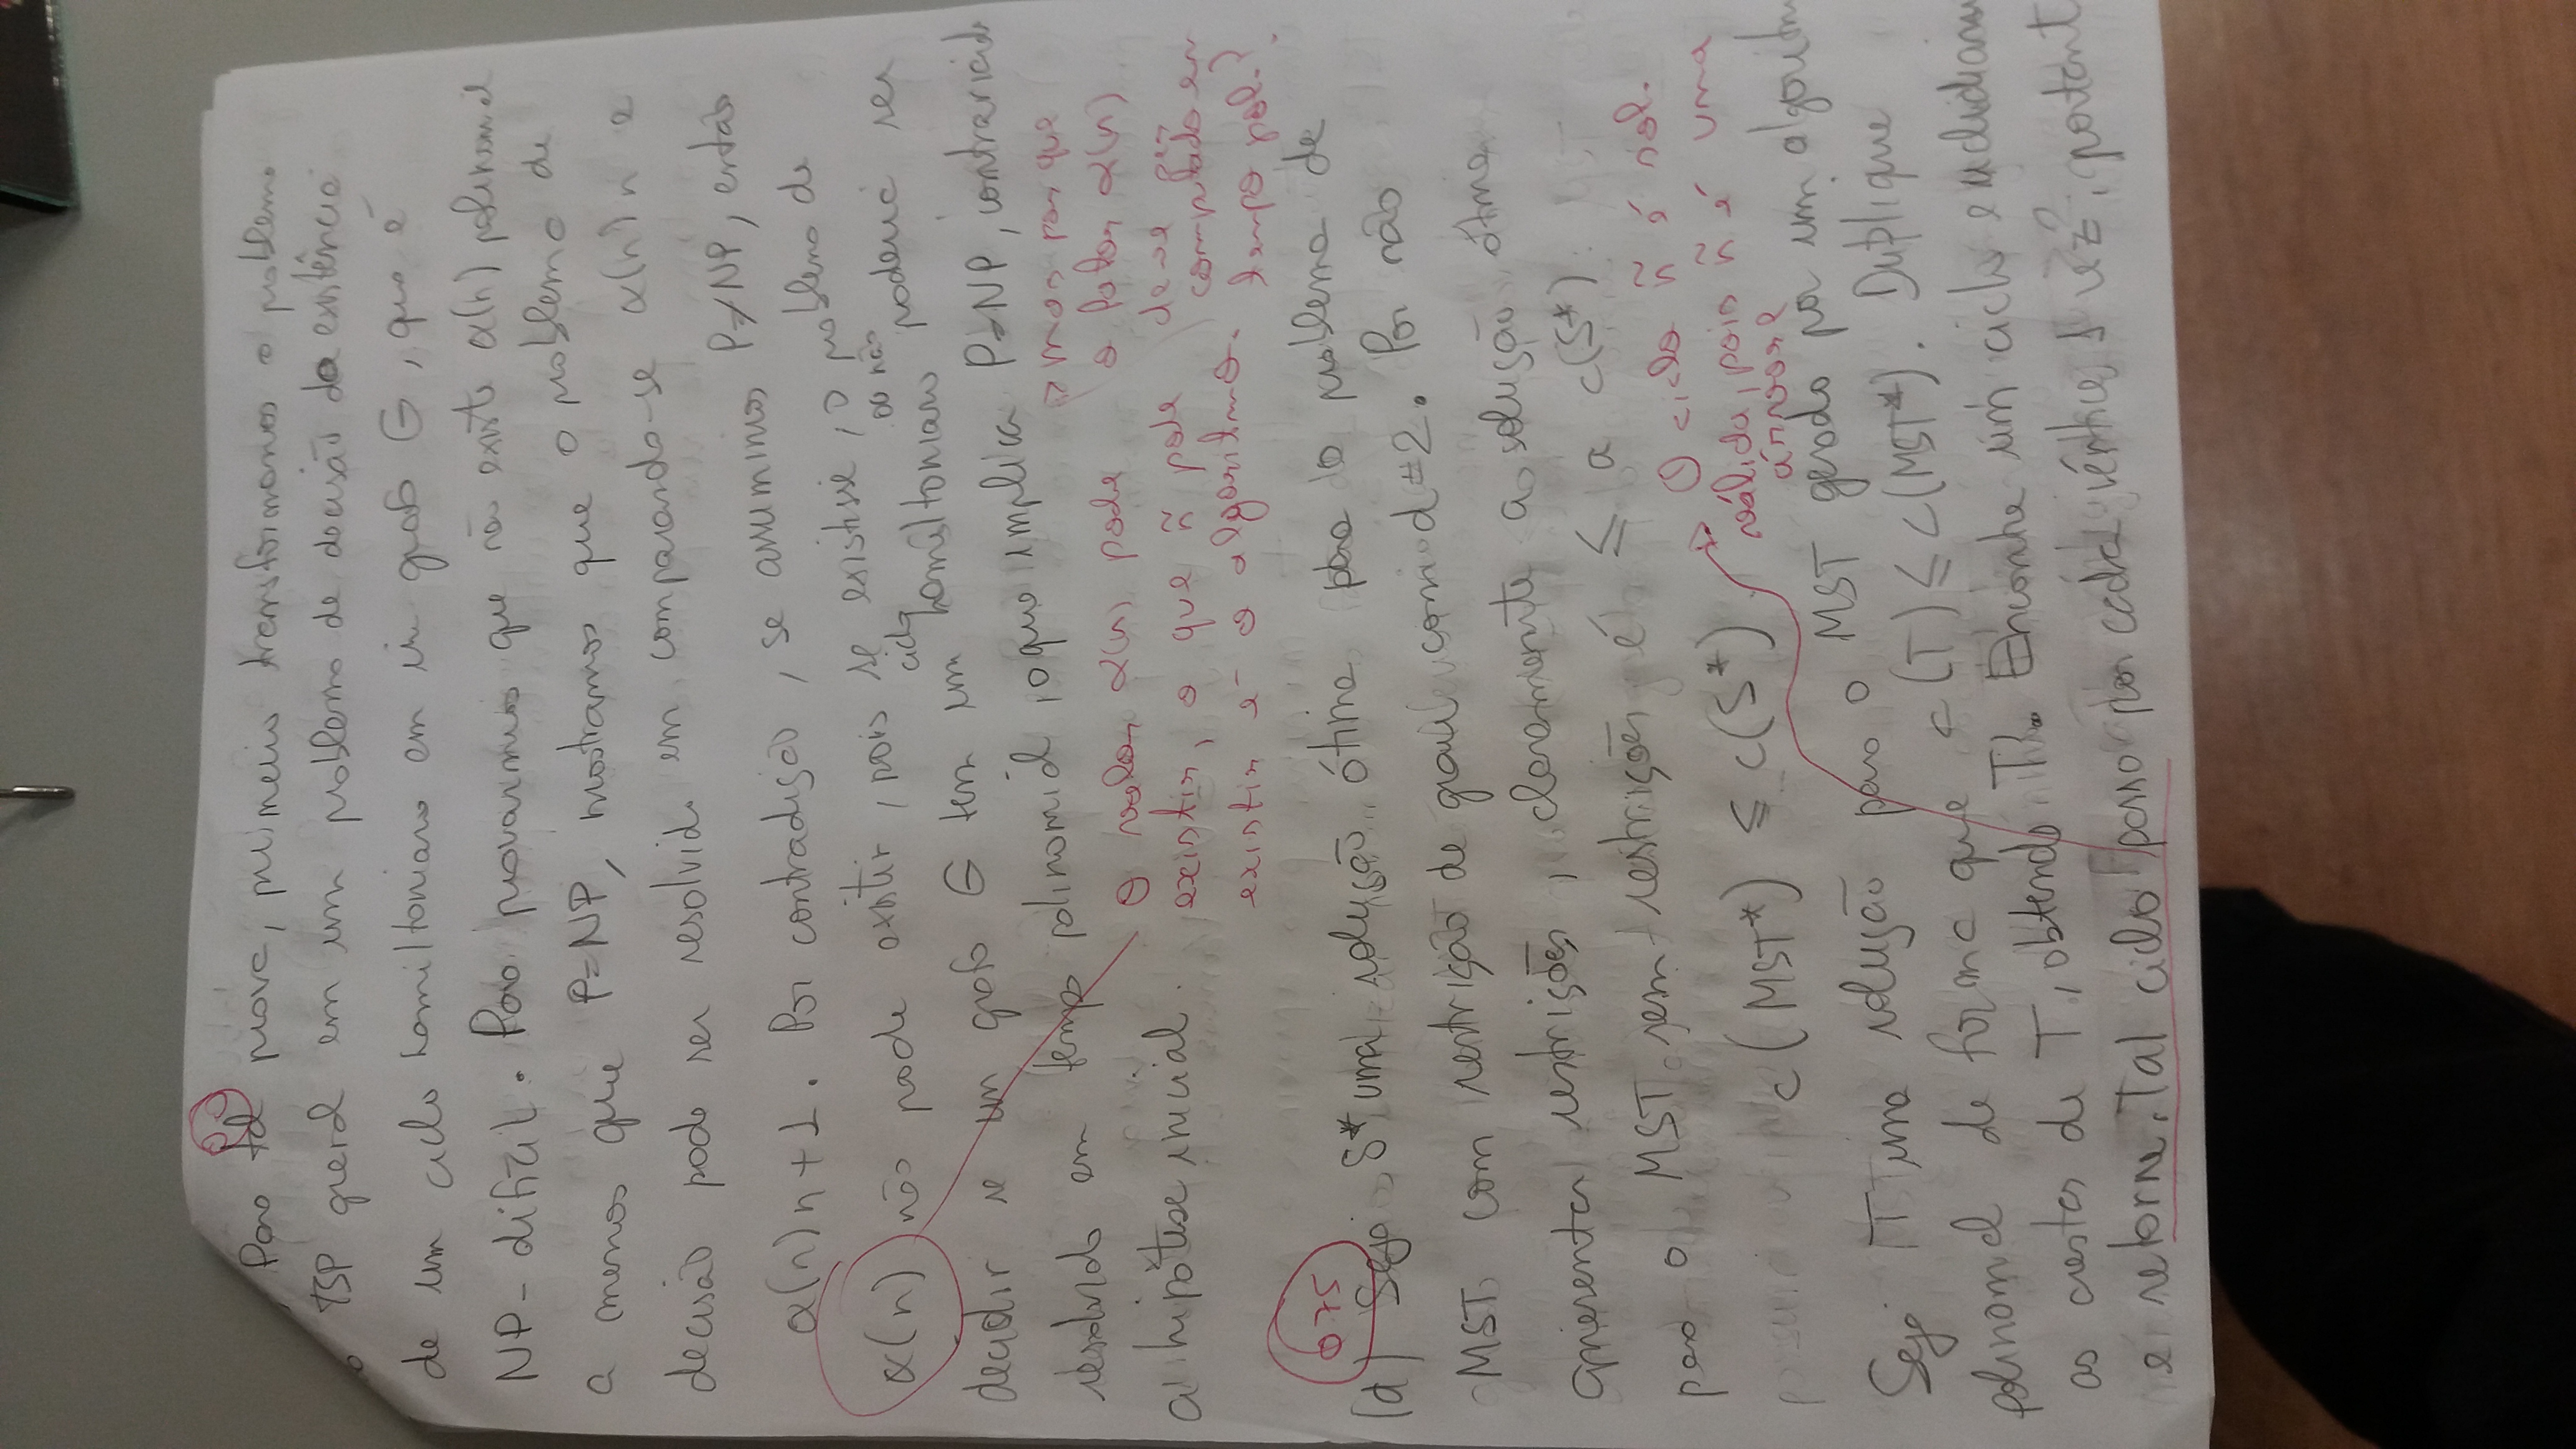 0,0
Para tal prova, primeiro transformamos o problema
o TSP geral em um problema de decisão da existência
de um ciclo hamiltoniano em um grafo G, que é
NP-difícil. Para provarmos que não existe α(n) polinomial
a menos que P=NP, mostramos que o problema de
decisão pode ser resolvido em comparando-se α(n)n e
α(n)n+1. Por contradição, se assumimos P≠NP, então
α(n) não pode existir, pois se existisse, o problema de
decidir se um grafo G tem um ciclo hamiltoniano ou não poderia ser
resolvido em tempo polinomial, o que implica P=NP, contrariando
a hipótese inicial.
O valor α(n) pode
existir, o que ñ pode
existir é o algoritmo.
mas por que
o fator α(n)
deve ser
computado em
tempo pol.?
0,75
(d) Seja S* uma solução ótima para o problema de
MST com restrição de grau com d=2. Por não
apresentar restrições, claramente a solução ótima
para o MST sem restrições é ≤ a c(S*).
c(MST*) ≤ c(S*)
O ciclo ñ é sol.
válida, pois ñ é uma
árvore
Seja T uma solução para o MST gerado por um algoritm
polinomial de forma que c(T) ≤ c(MST*). Duplique
as arestas de T, obtendo T'. Encontre um ciclo euclidiano
e retorne. Tal ciclo passa por cada vértice 1 vez, portant